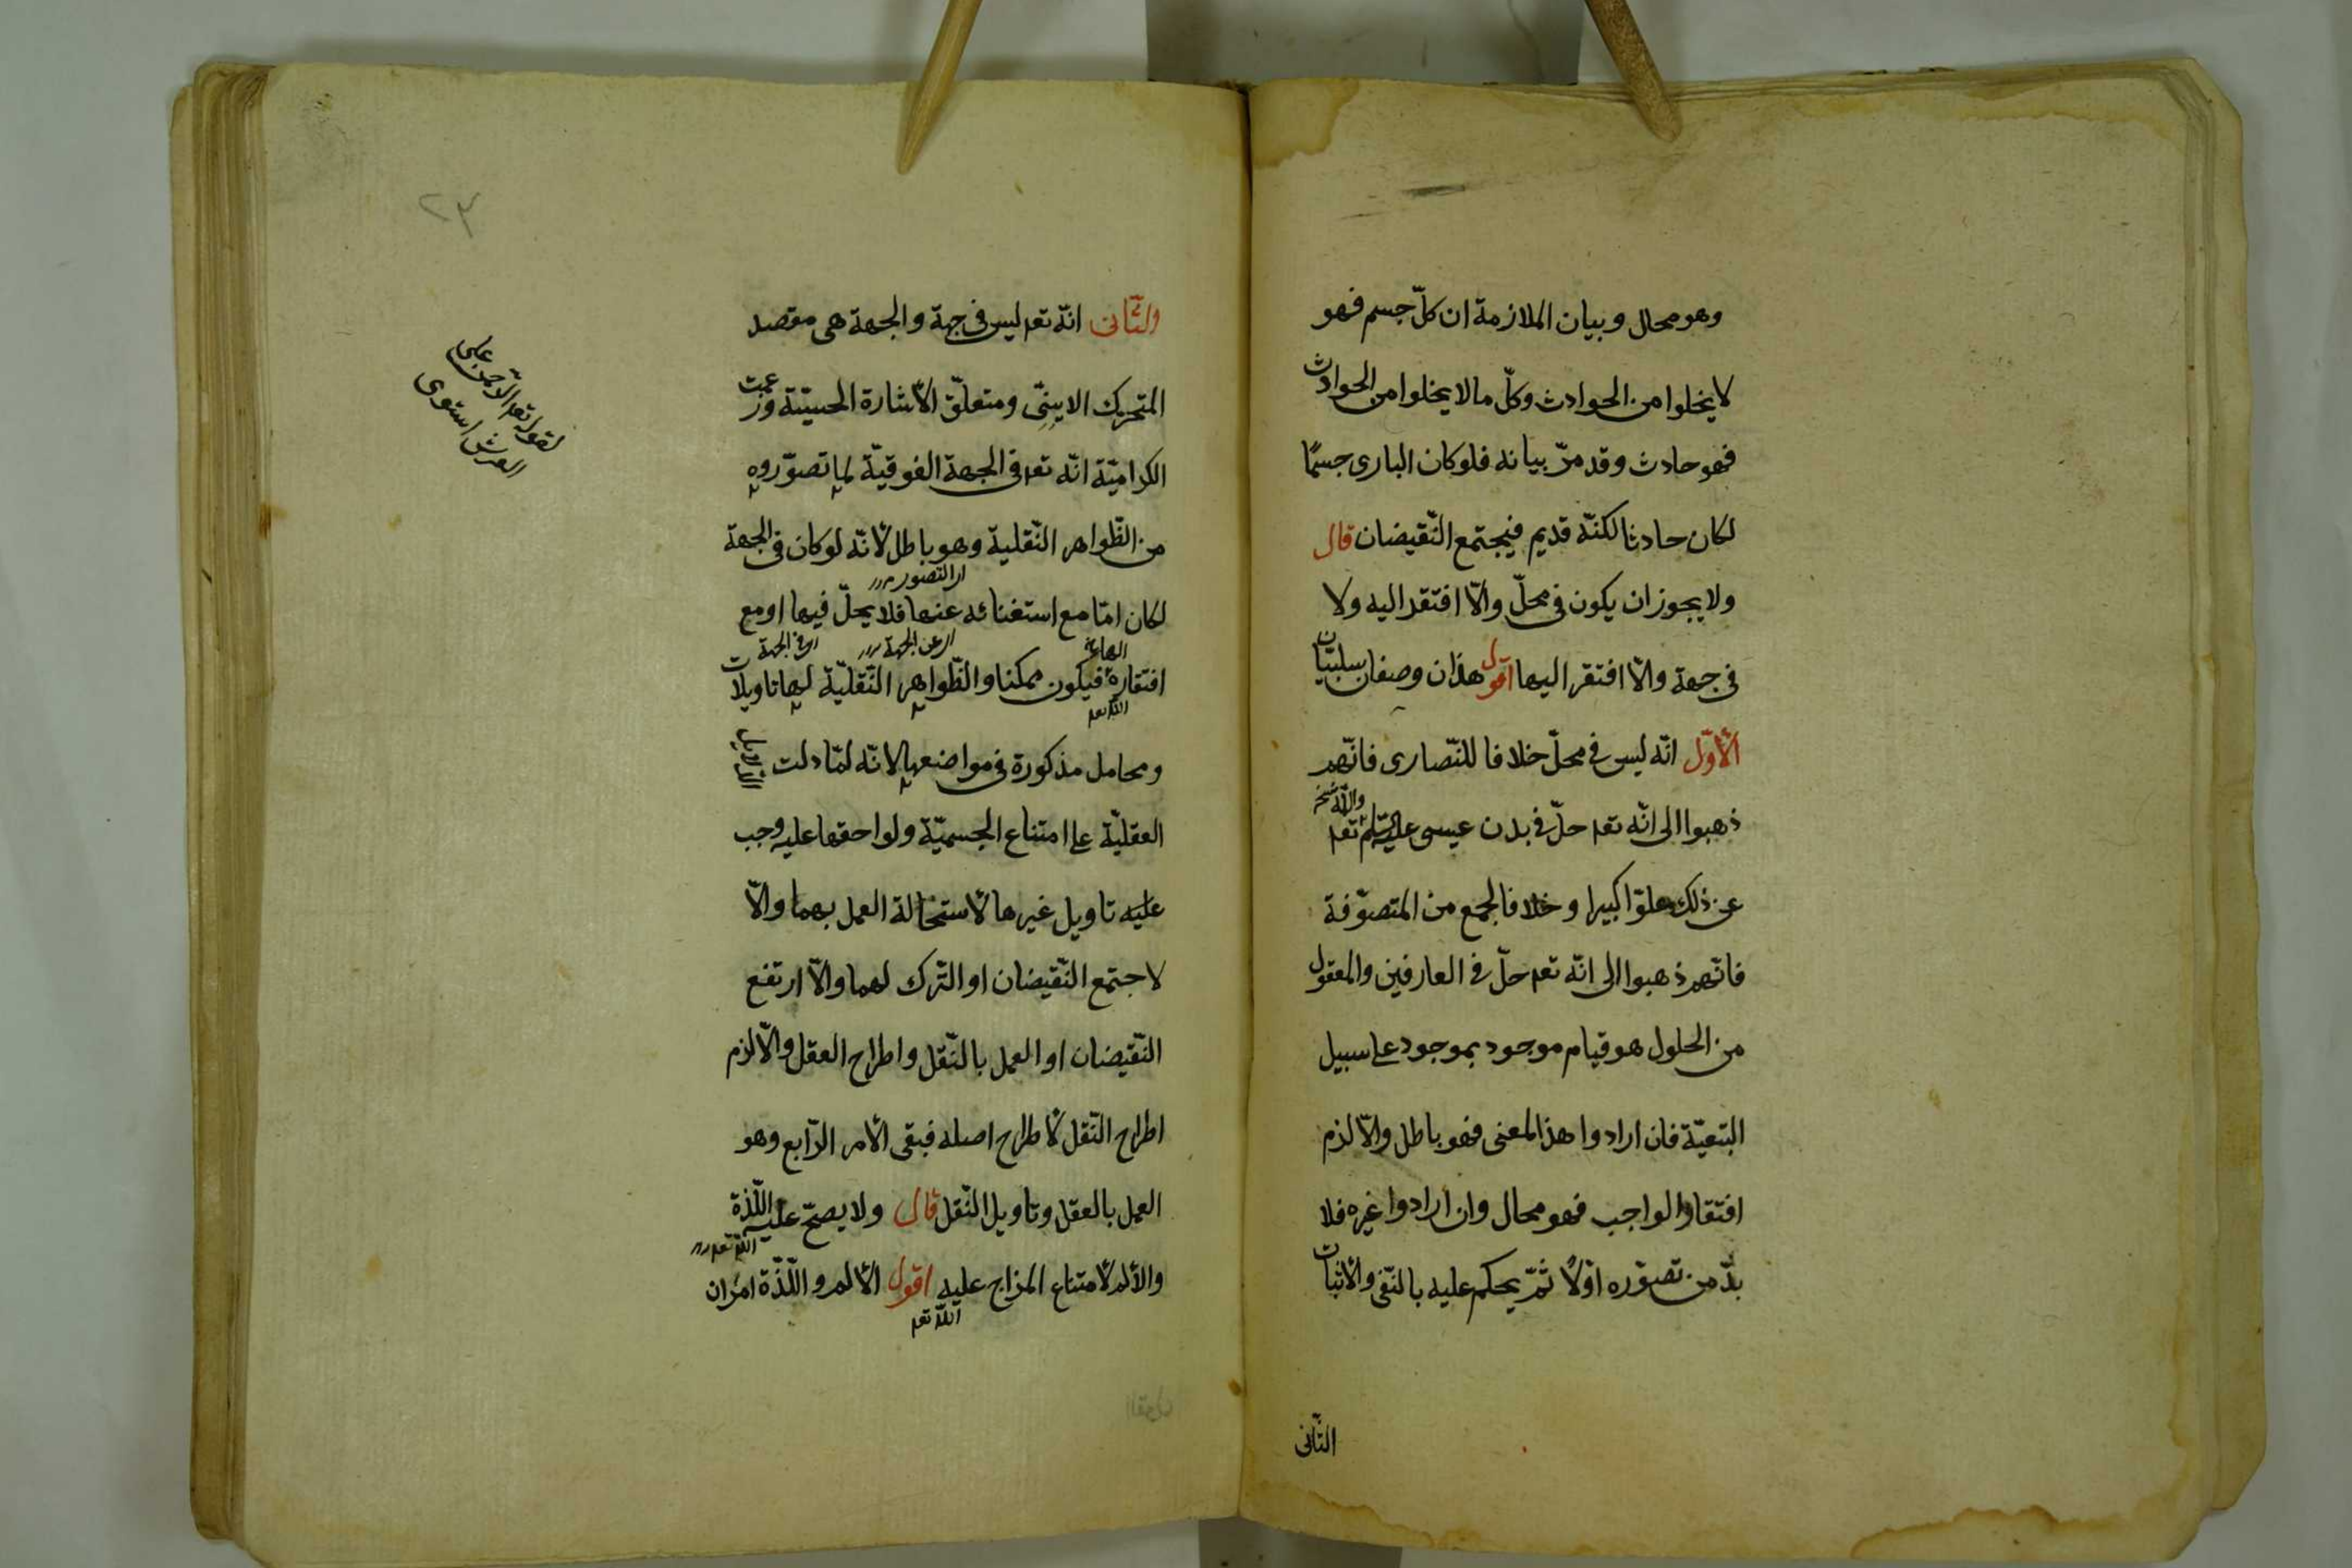 وهو محال وبيان الملازمة ان كلّ جسم فهو
لا يخلوا من الحوادث وكلّ ما لا يخلوا من الحوادث
فهو حادث وقد مرّ بيانه فلو كان البارى جسمًا
لكان حادثا لكنّه قديم فيجتمع النّقيضان قال
ولا يجوز ان يكون فى محلّ والّا افتقر اليه ولا
فى جهة والّا افتقر اليها اقول هذان وصفان سلبيّان
الأوّل انّه ليس فى محلّ خلافا للنّصارى فانّهم
ذهبوا الى انّه تعه حلّ فى بدن عيسى عليه السّلم تعه
والله
عن ذلك علوّا كبيرا وخلافا لجمع من المتصوّفة
فانّهم ذهبوا الى انّه تعه حلّ فى العارفين والمعقول
من الحلول هو قيام موجود بموجود على سبيل
التبعيّة فان ارادوا هذا المعنى فهو باطل والّا لزم
افتقار الواجب فهو محال وان ارادوا غيره فلا
بدّ من تصوّره اوّلًا ثمّ يحكم عليه بالنّفى والأثبات
الثّانى
٢٣
والثّانى انّه تعه ليس فى جهة والجهة هى مقصد
المتحرك الاينىّ ومتعلّق الأشارة الحسيّة وزعمت
الكراميّة انّه تعه فى الجهة الفوقيّة لما تصوّروه
من الظّواهر النّقلية وهو باطل لأنّه لو كان فى الجهة
لكان امّا مع استغنائه عنها فلا يحلّ فيها او مع
اى عن الجهة
اى فى الجهة
افتقاره فيكون ممكنا والظّواهر النّقليّة لها تاويلات
الله تعه
ومحامل مذكورة فى مواضعها لانّه لمّا دلت
العقليّة على امتناع الجسميّة ولواحقها عليه وجب
عليه تاويل غيرها لأستحالة العمل بهما والّا
لاجتمع النّقيضان او التّرك لهما والّا ارتفع
النّقيضان او العمل بالنّقل واطراح العقل والّا لزم
اطراح النّقل لأطراح اصله فبقى الأمر الرّابع وهو
العمل بالعقل وتاويل النّقل قال ولا يصحّ عليه اللّذة
الله تعه
والألم لأمتناع المزاج عليه اقول الألم واللّذّة امران
الله تعه
لقوله تعه الرّحمن على
العرش استوى